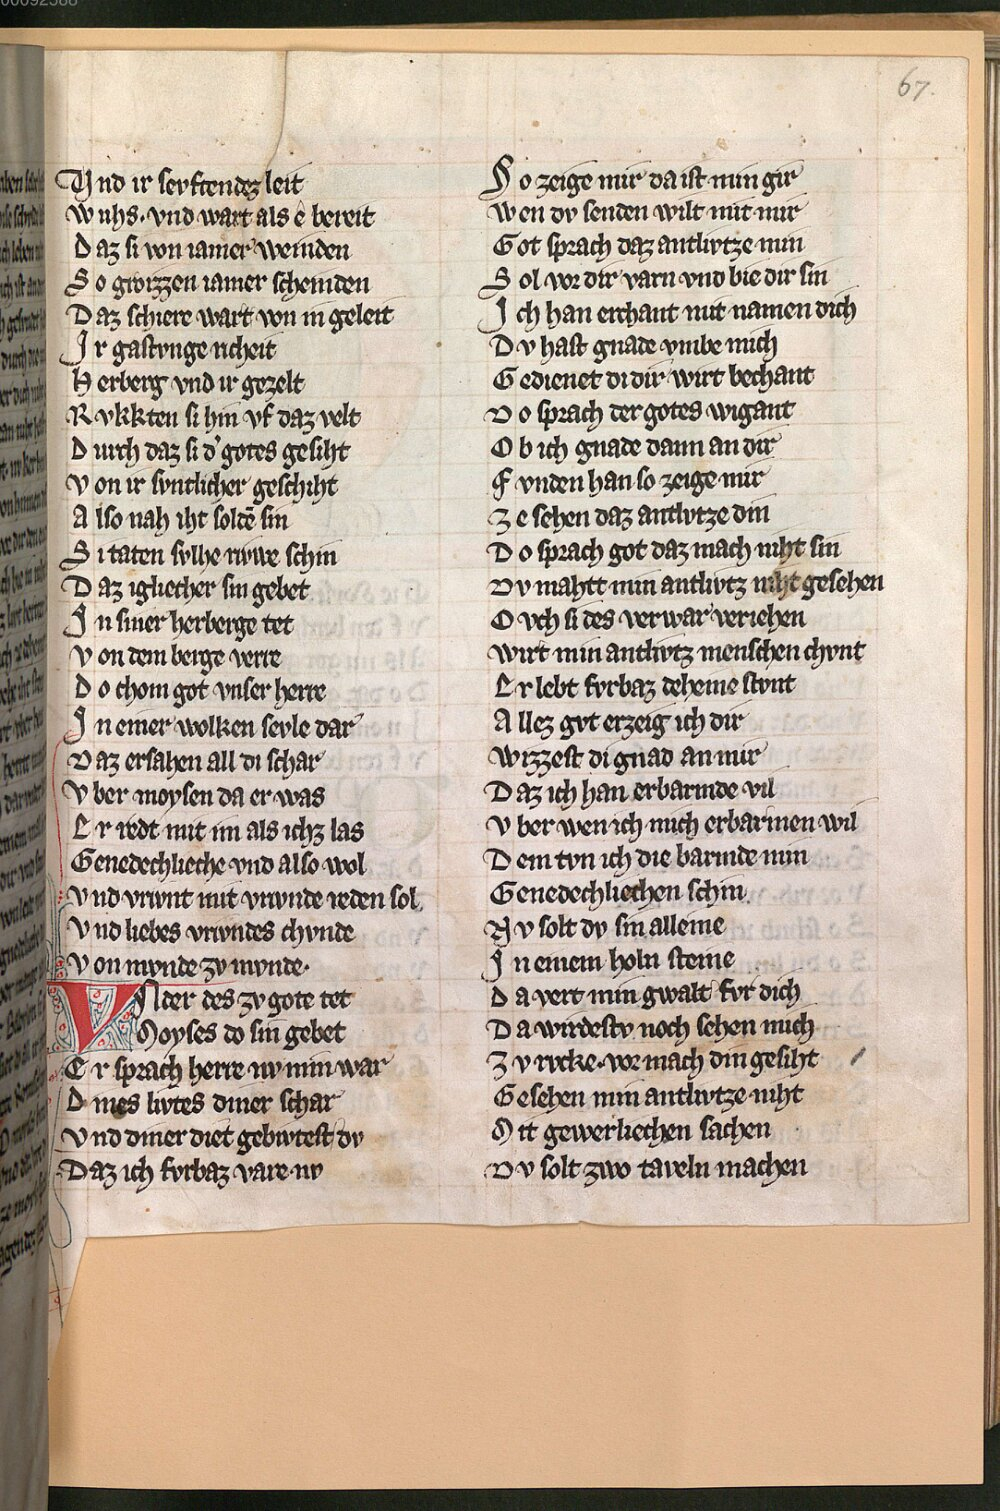 67.
Vnd ir seyftendez leit
Wuhs. vnd wart als e bereit
Daz si von iamer weinden
So gwizzen iamer scheinden
Daz schiere wart von in geleit
Ir gastvnge richeit
Herberg vnd ir gezelt
Rvkkten si hin vf daz velt
Durch daz si d' gotes gesiht
Von ir svntlicher geschiht
Also nah iht soltē sin
Si taten sylhe riwe schin
Daz igliecher sin gebet
In siner herberge tet
Von dem berge verre
Do chom got vnser herre
In einer wolken sevle dar
Daz ersahen all di schar
Vber moysen da er was
Er redt mit im als ichz las
Genedechlieche vnd also wol
Vnd vrivnt mit vrivnde reden sol
Vnd liebes vrivndes chvnde
Von mvnde zv mvnde.
Vnder des zv gote tet
Moyses do sin gebet
Er sprach herre nv nim war
Dines livtes diner schar
Vnd diner diet gebivtest dv
Daz ich fvrbaz vare nv
So zeige mir da ist min gir
Wen dv senden wilt mit mir
Got sprach daz antlivtze min
Sol vor dir varn vnd bie dir sin
Ich han erchant mit namen dich
Dv hast gnade vmbe mich
Gedienet di dir wirt bechant
Do sprach der gotes wigant
Ob ich gnade dann an dir
Fvnden han so zeige mir
Ze sehen daz antlvtze din
Do sprach got daz mach niht sin
Dv mahtt min antlivtz niht gesehen
Ovch si des verwar veriehen
Wirt min antlivtz menschen chvnt
Er lebt fvrbaz deheine stvnt
Allez gvt erzeig ich dir
Wizzest di gnad an mir
Daz ich han erbarmde vil
Vber wen ich mich erbarmen wil
Dem tvn ich die barmde min
Genedechliechen schin
Nv solt dv sin alleine
In einem holn steine
Da vert min gwalt fvr dich
Da wirdestv noch sehen mich
Zv rvcke. vor mach din gesiht
Gesehen min antlivtze niht
Mit gewerliechen sachen
Dv solt zwo taveln machen